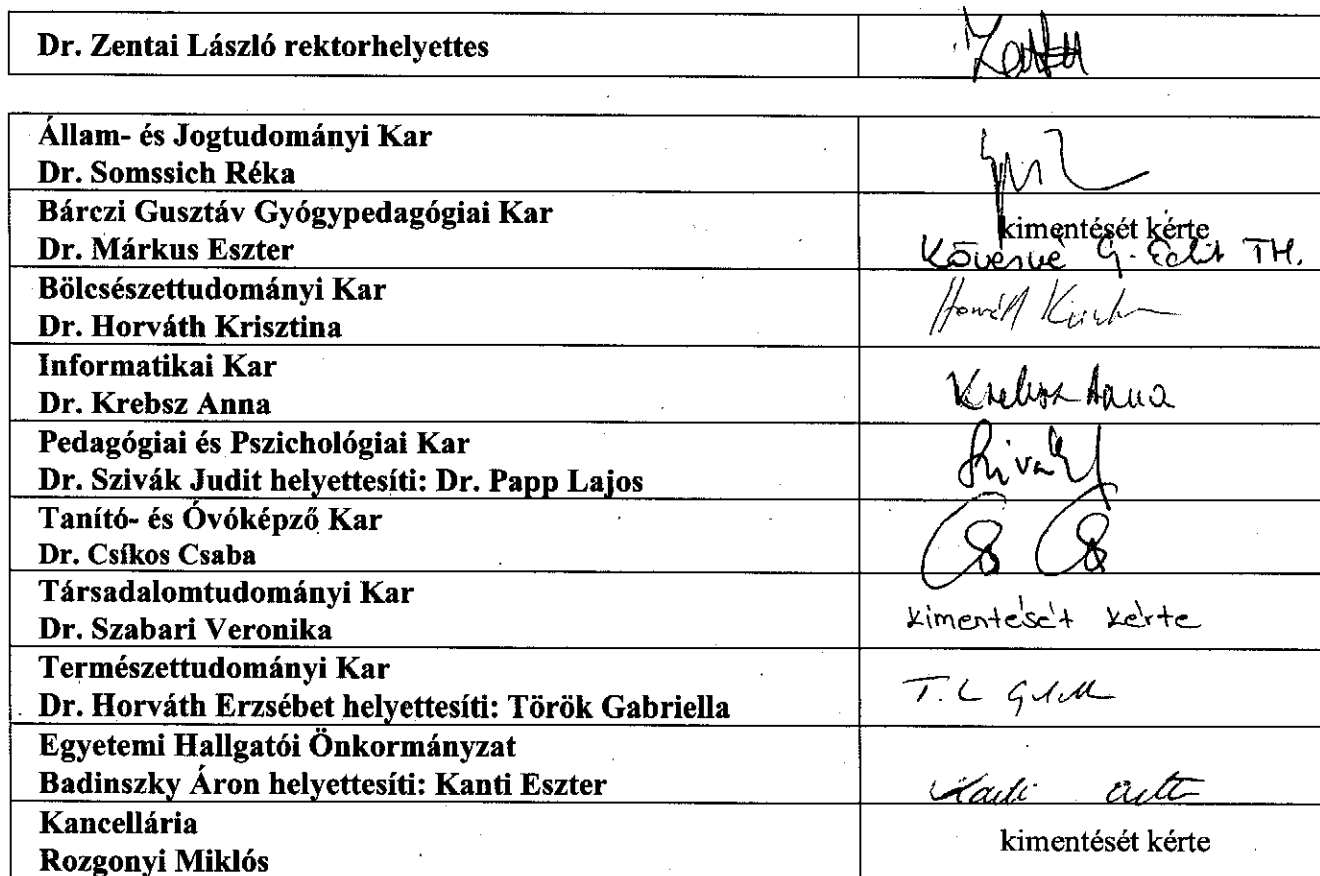 Dr. Zentai László rektorhelyettes
Állam- és Jogtudományi Kar
Dr. Somssich Réka
Bárczi Gusztáv Gyógypedagógiai Kar
Dr. Márkus Eszter
kimentését kérte
Bölcsészettudományi Kar
Dr. Horváth Krisztina
Informatikai Kar
Dr. Krebsz Anna
Krebsz Anna
Pedagógiai és Pszichológiai Kar
Dr. Szivák Judit helyettesíti: Dr. Papp Lajos
Tanító- és Óvóképző Kar
Dr. Csíkos Csaba
Társadalomtudományi Kar
Dr. Szabari Veronika
kimentését kérte
Természettudományi Kar
Dr. Horváth Erzsébet helyettesíti: Török Gabriella
Egyetemi Hallgatói Önkormányzat
Badinszky Áron helyettesíti: Kanti Eszter
Kancellária
Rozgonyi Miklós
kimentését kérte